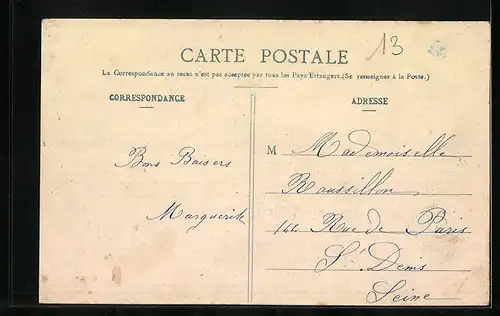 13
CARTE POSTALE
La Correspondance au recto n'est pas acceptée par tous les Pays Etrangers. (Se renseigner à la Poste.)
CORRESPONDANCE
ADRESSE
Bons Baisers
Marguerite
M Mademoiselle
Roussillon
141 Rue de Paris
St Denis
Seine